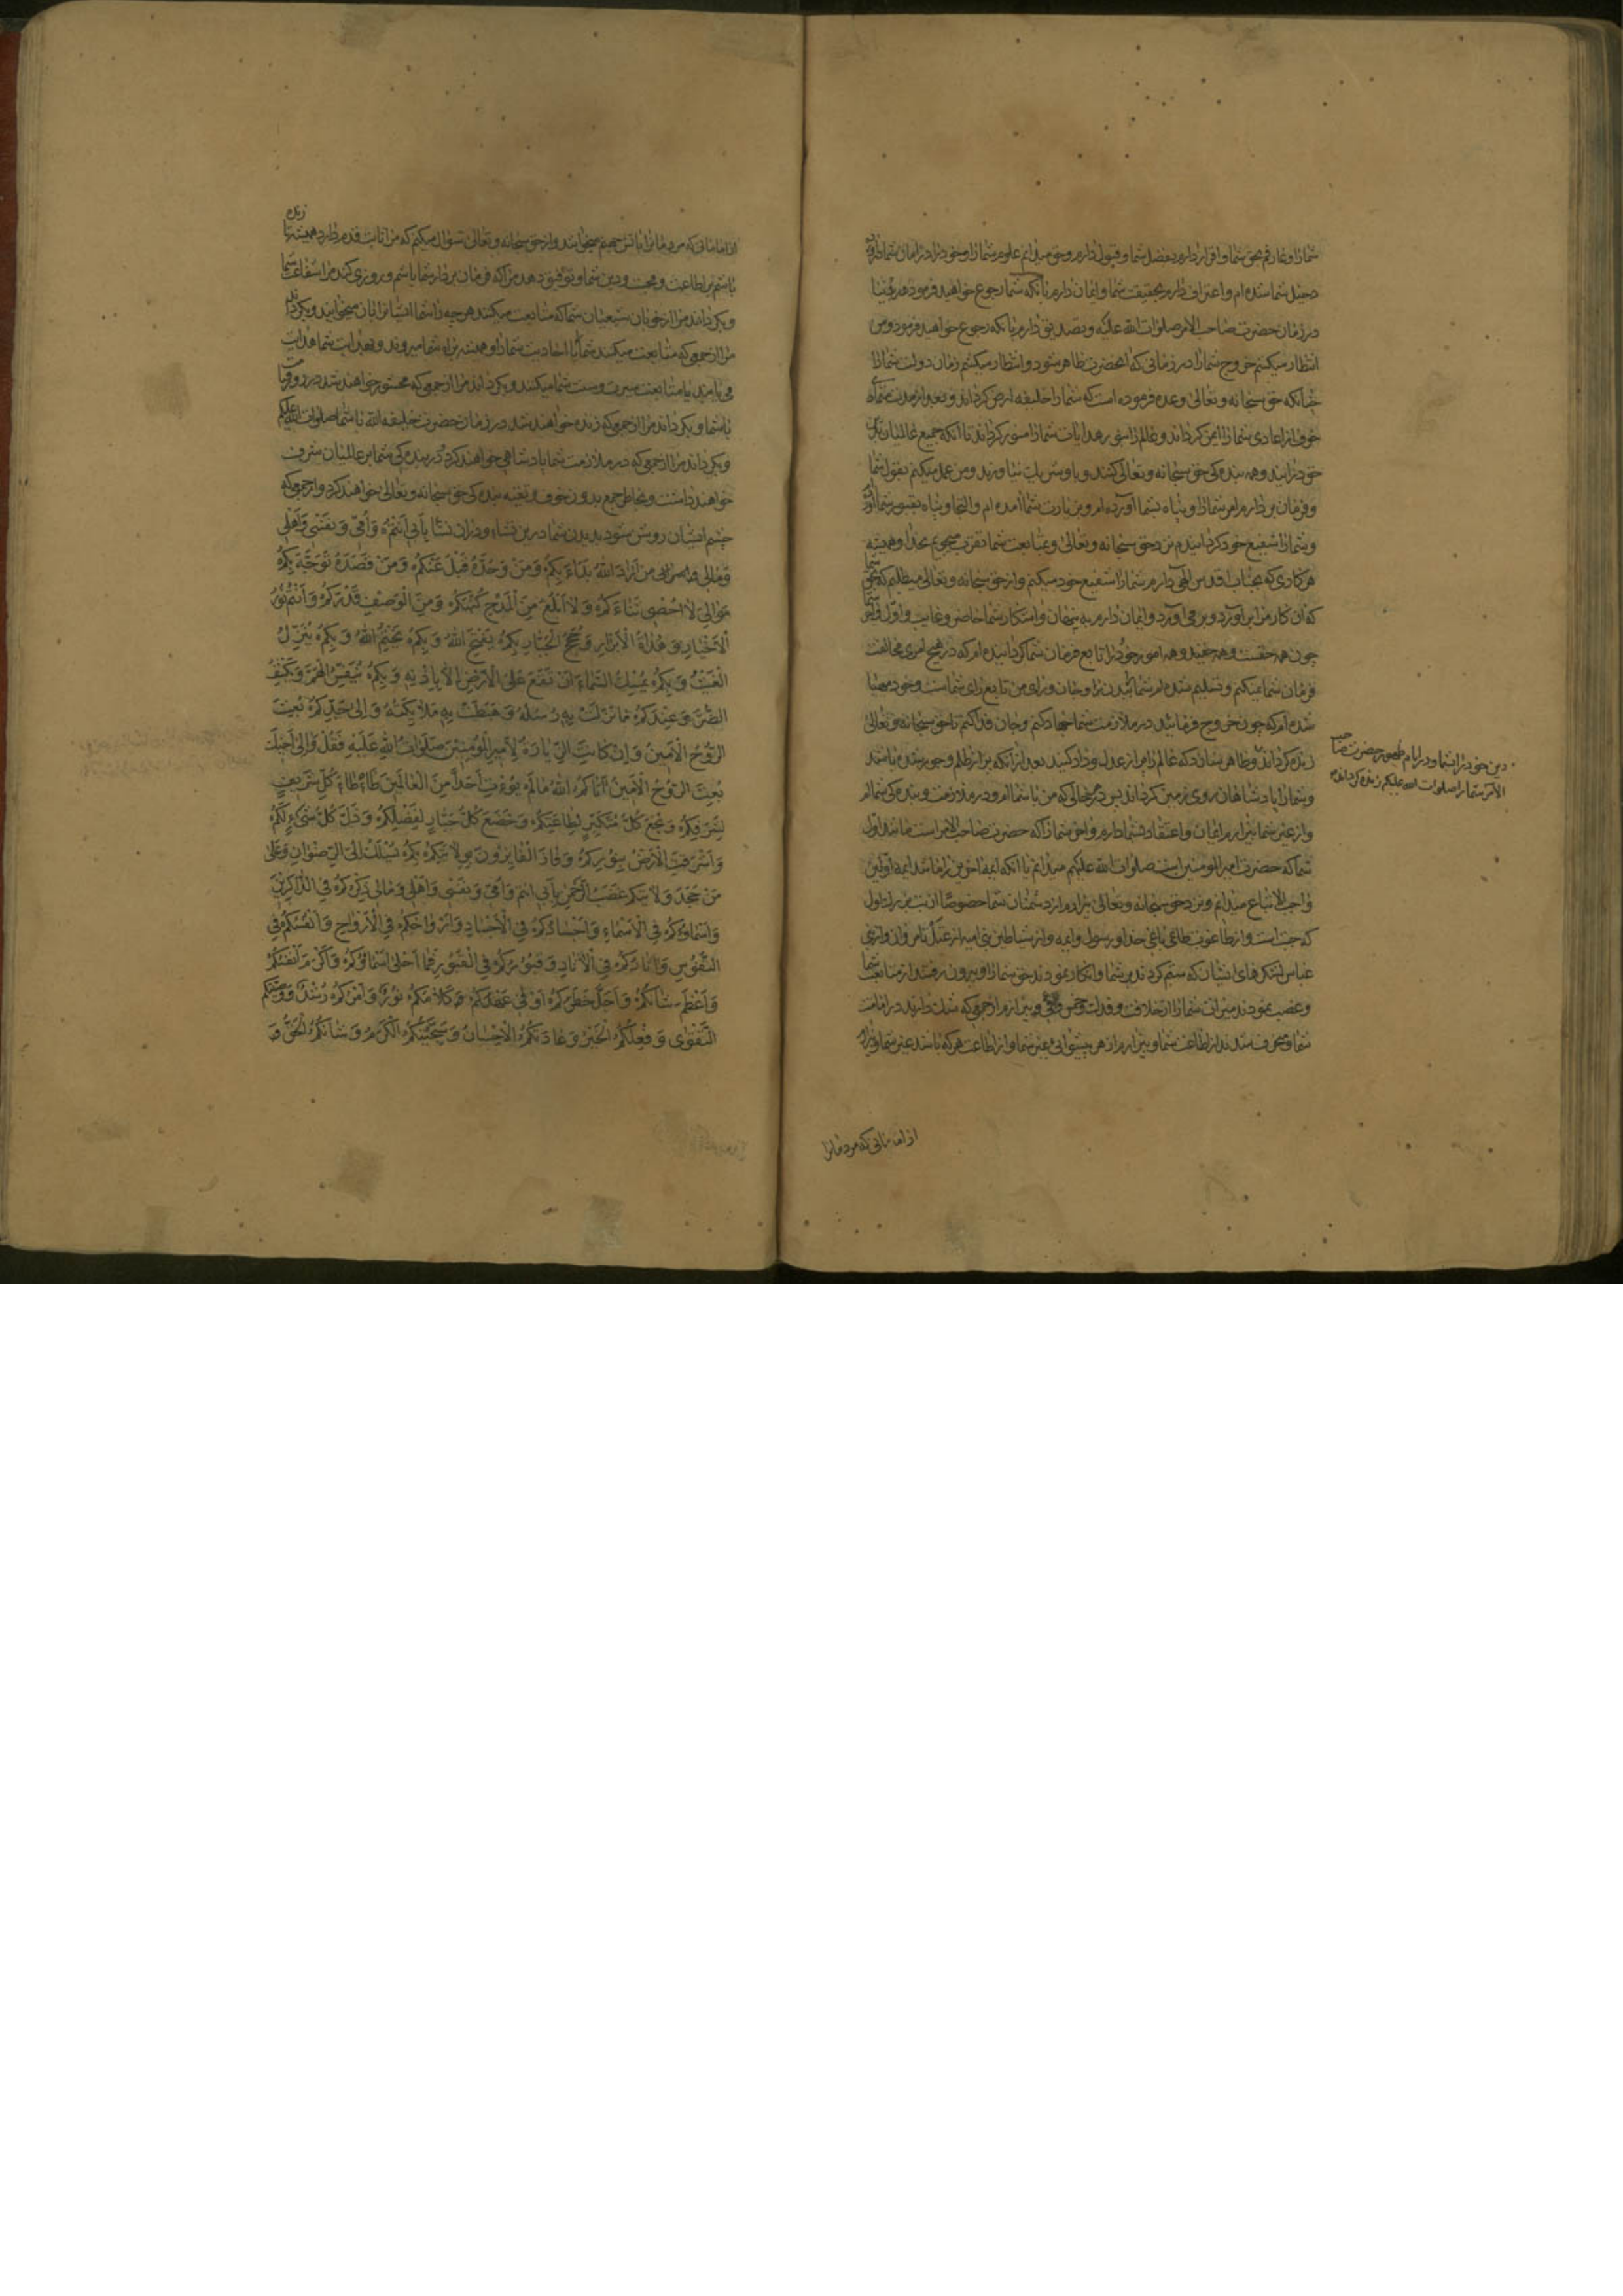 شما را و عارفم بحق شما و اقرار دارم بفضل شما و قبول دارم و حق میدانم علوم شما را و خود را در امان شما
شده‌ام و اعتراف دارم بحقیقت شما و ایمان دارم بآنکه شما رجوع خواهید فرمود
در زمان حضرت صاحب الامر صلوات الله علیه و تصدیق دارم بآنکه رجوع خواهید فرمود و من
انتظار میکشم خروج شما را در زمانی که آنحضرت ظاهر شود و انتظار میکشم زمان دولت شما را
چنانکه حق سبحانه و تعالی وعده فرموده است که شما را خلیفه ارض گرداند و بعد از مدت
خوف از اعادی شما را ایمن گرداند و عالم را بنور هدایات شما منور گرداند تا آنکه جمیع عالمیان
خود درآیند و همه بندگی حق سبحانه و تعالی کنند و با او شریک نیاورند و من عمل میکنم بقول شما
و فرمان بردارم امر شما را و پناه بشما آورده‌ام و بزیارت شما آمده‌ام و التجا و پناه بقبور شما
و شما را شفیع خود گردانیدم نزد حق سبحانه و تعالی و بمتابعت شما تقرب میجویم بخدا و همیشه
هر کاری که بجناب اقدس الهی دارم شما را شفیع خود میکنم و از حق سبحانه و تعالی میطلبم که بحق شما
که آن کار مرا برآورد و برمی‌آورد و ایمان دارم به پنهان و آشکار شما حاضر و غایب و اول و آخر شما
چون همه حقست و همه امور خود را تابع فرمان شما گردانیده‌ام که در هیچ امری مخالفت
فرمان شما نمیکنم و تسلیم شده‌ام شما را بدن و جان و رای من تابع رای شماست و خود مهیا
شده‌ام که چون خروج فرمائید در ملازمت شما جهاد کنم و جان فدا کنم تا حق سبحانه و تعالی
دین خود را بشما و در ایام ظهور حضرت صاحب
الامر شما را صلوات الله علیکم زنده گرداند
زنده گرداند و ظاهر سازد که عالم را پر از عدل و داد کنید بعد از آنکه پر از ظلم و جور شده باشد
و شما را پادشاهان روی زمین گرداند پس در هر حالی که من با شماام و در ملازمت و بندگی شماام
و از غیر شما بیزارم ایمان و اعتقاد بشما دارم و آخر شما را که حضرت صاحب الامر است مانند اول
شما که حضرت امیر المؤمنین است صلوات الله علیهم میدانم تا آنکه ایمه آخرین را مانند ایمه اولین
واجب الاتباع میدانم و نزد حق سبحانه و تعالی بیزارم از دشمنان شما خصوصا از
که جبت است و از طاغوت طاغی یاغی خدا و رسول و ایمه و از شیاطین بنی امیه از و از بنی
عباس لشکرهای ایشان که ستم کردند بر شما و انکار نمودند حق شما را و بیرون رفتند از متابعت شما
و غصب نمودند میراث شما را از خلافت و فدک و خمس و و بیزارم از جمعی که شک دارند در امامت
شما و منحرف شدند از اطاعت شما و بیزارم از هر پیشوائی بغیر شما و از اطاعت هر که باشد غیر شما و بیزارم
از امامانی که مردمانرا
از امامانی که مردمانرا بآتش جهیم میخوانند و از حق سبحانه و تعالی سؤال میکنم که مرا ثابت قدم دارد همیشه تا زنده
باشم بر اطاعت و محبت و دین شما و توفیق دهد مرا که فرمان بردار شما باشم و روزی کند مرا شفاعت شما
و بگرداند مرا از خوبان شیعیان شما که متابعت میکنند هر چه را شما ایشانرا بآن میخوانید و بگرداند
مرا از جمعی که متابعت میکنند شما را با احادیث شما و همیشه براه شما میروند و بهدایت شما هدایت
می‌یابند یا متابعت سیرت و سنت شما میکنند و بگرداند مرا از جمعی که محشور خواهند شد در روز قیامت
با شما و بگرداند مرا از جمعی که زنده خواهند شد در زمان حضرت خلیفه الله با شما صلوات الله علیکم
و بگرداند مرا از جمعی که در ملازمت شما پادشاهی خواهند کرد و در بندگی شما بر عالمیان شرف
خواهند داشت و بخاطر جمع بدون خوف و تقیه بندگی حق سبحانه و تعالی خواهند کرد و از جمعی که
چشم ایشان روشن شود بدیدن شما درین نشاء و در آن نشاء بِأَبِي أَنْتُمْ وَأُمِّي وَنَفْسِي وَأَهْلِي
وَمَالِي مَنْ أَرَادَ اللهَ بَدَأَ بِكُمْ وَمَنْ وَحَّدَهُ قَبِلَ عَنْكُمْ وَمَنْ قَصَدَهُ تَوَجَّهَ بِكُمْ
مَوَالِيَّ لَا أُحْصِي ثَنَاءَكُمْ وَلَا أَبْلُغُ مِنَ الْمَدْحِ كُنْهَكُمْ وَمِنَ الْوَصْفِ قَدْرَكُمْ وَأَنْتُمْ نُورُ
الْأَخْيَارِ وَهُدَاةُ الْأَبْرَارِ وَحُجَجُ الْجَبَّارِ بِكُمْ يَفْتَحُ اللهُ وَبِكُمْ يَخْتِمُ اللهُ وَبِكُمْ يُنَزِّلُ
الْغَيْثَ وَبِكُمْ يُمْسِكُ السَّمَاءَ أَنْ تَقَعَ عَلَى الْأَرْضِ إِلَّا بِإِذْنِهِ وَبِكُمْ يُنَفِّسُ الْهَمَّ وَيَكْشِفُ
الضُّرَّ وَعِنْدَكُمْ مَا نَزَلَتْ بِهِ رُسُلُهُ وَهَبَطَتْ بِهِ مَلَائِكَتُهُ وَإِلَى جَدِّكُمْ بُعِثَ
الرُّوحُ الْأَمِينُ وَإِنْ كَانَتِ الزِّيَارَةُ لِأَمِيرِ الْمُؤْمِنِينَ صَلَوَاتُ اللهِ عَلَيْهِ فَقُلْ وَإِلَى أَخِيكَ
بُعِثَ الرُّوحُ الْأَمِينُ آتَاكُمُ اللهُ مَا لَمْ يُؤْتِ أَحَدًا مِنَ الْعَالَمِينَ طَأْطَأَ كُلُّ شَرِيفٍ
لِشَرَفِكُمْ وَبَخَعَ كُلُّ مُتَكَبِّرٍ لِطَاعَتِكُمْ وَخَضَعَ كُلُّ جَبَّارٍ لِفَضْلِكُمْ وَذَلَّ كُلُّ شَيْءٍ لَكُمْ
وَأَشْرَقَتِ الْأَرْضُ بِنُورِكُمْ وَفَازَ الْفَائِزُونَ بِوِلَايَتِكُمْ بِكُمْ يُسْلَكُ إِلَى الرِّضْوَانِ وَعَلَى
مَنْ جَحَدَ وَلَايَتَكُمْ غَضَبُ الرَّحْمٰنِ بِأَبِي أَنْتُمْ وَأُمِّي وَنَفْسِي وَأَهْلِي وَمَالِي ذِكْرُكُمْ فِي الذَّاكِرِينَ
وَأَسْمَاؤُكُمْ فِي الْأَسْمَاءِ وَأَجْسَادُكُمْ فِي الْأَجْسَادِ وَأَرْوَاحُكُمْ فِي الْأَرْوَاحِ وَأَنْفُسُكُمْ فِي
النُّفُوسِ وَآثَارُكُمْ فِي الْآثَارِ وَقُبُورُكُمْ فِي الْقُبُورِ فَمَا أَحْلَى أَسْمَاؤُكُمْ وَأَكْرَمَ أَنْفُسَكُمْ
وَأَعْظَمَ شَأْنَكُمْ وَأَجَلَّ خَطَرَكُمْ وَأَوْفَى عَهْدَكُمْ كَلَامُكُمْ نُورٌ وَأَمْرُكُمْ رُشْدٌ وَوَصِيَّتُكُمُ
التَّقْوَى وَفِعْلُكُمُ الْخَيْرُ وَعَادَتُكُمُ الْإِحْسَانُ وَسَجِيَّتُكُمُ الْكَرَمُ وَشَأْنُكُمُ الْحَقُّ وَ